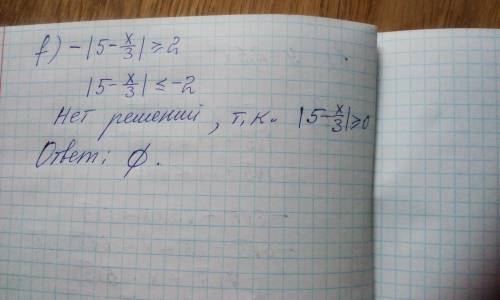 f) -|5-x/3|≥2
|5-x/3|≤-2
Нет решений, т.к. |5-x/3|≥0
Ответ: ∅.